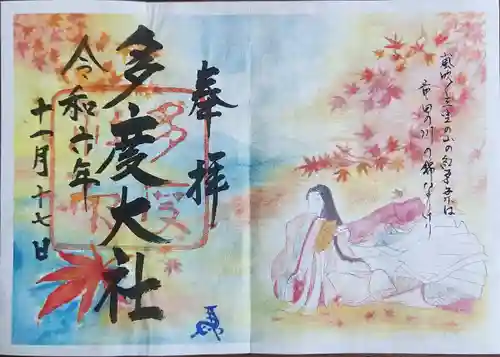 嵐吹く三室の山のもみぢ葉は
竜田の川の錦なりけり
奉拝
多度大社
令和
年
十一月十七日